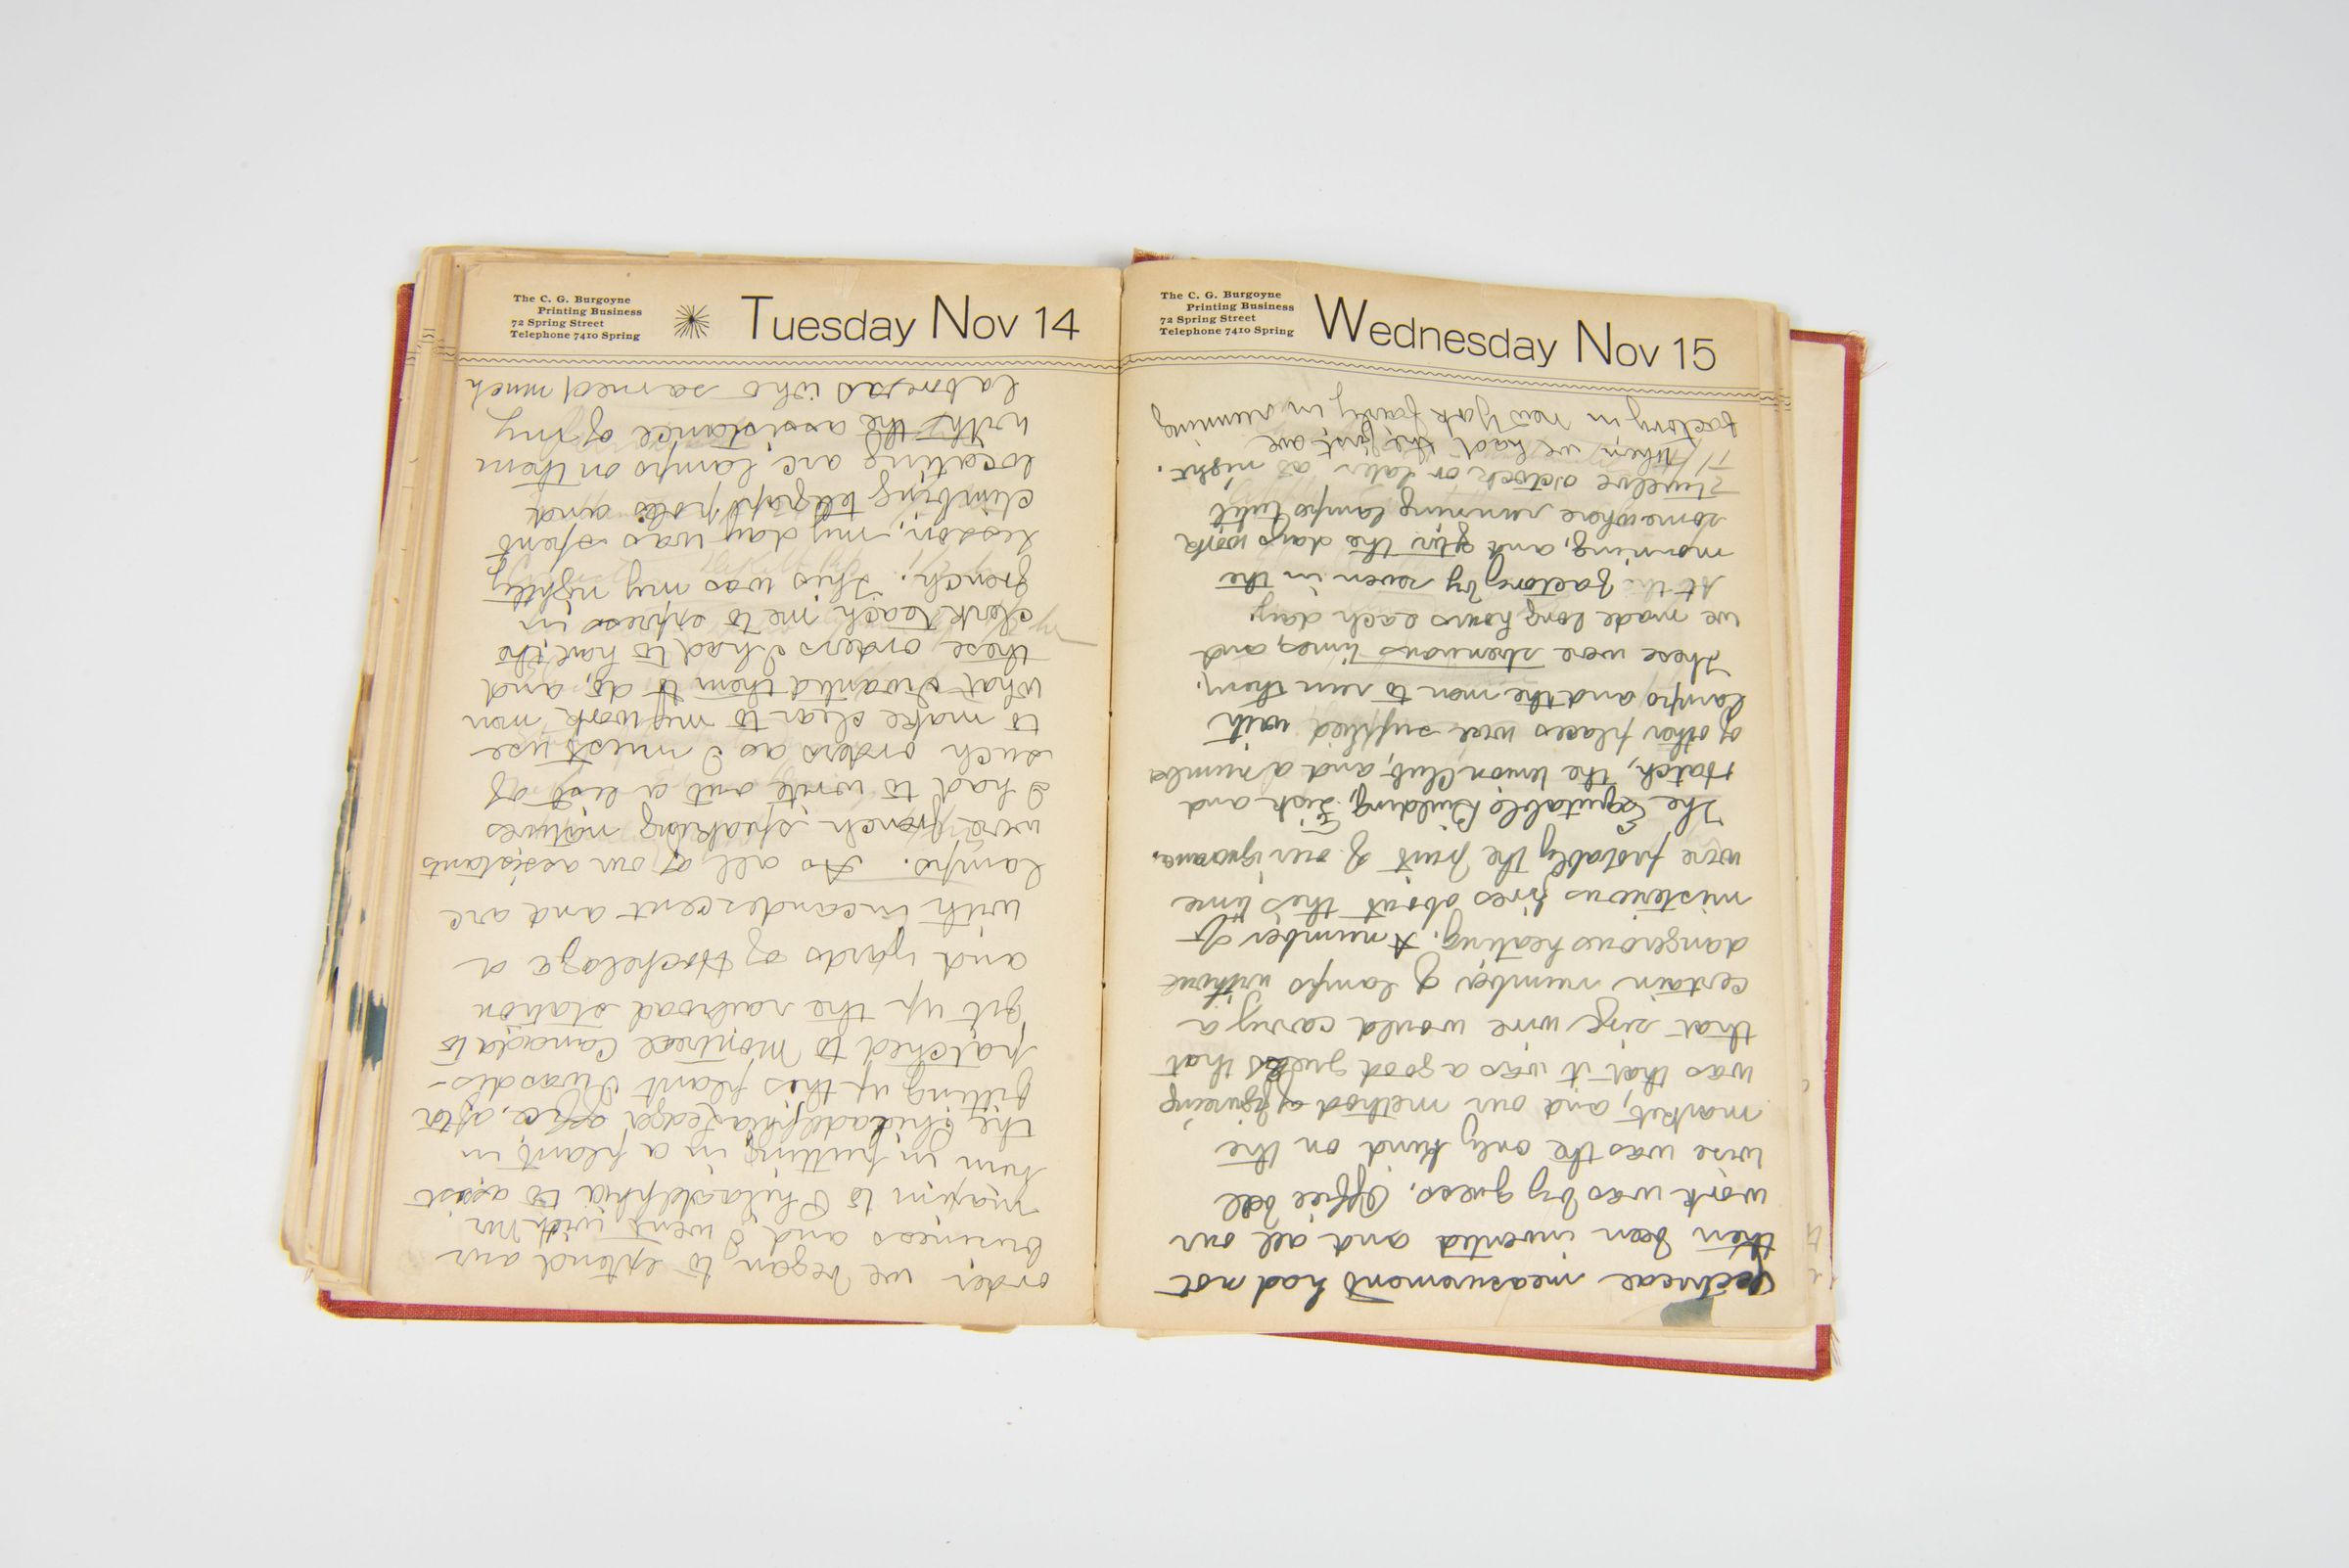 The C. G. Burgoyne
Printing Business
72 Spring Street
Telephone 7410 Spring
Tuesday Nov 14
The C. G. Burgoyne
Printing Business
72 Spring Street
Telephone 7410 Spring
Wednesday Nov 15
lectrical measurement had not
then been invented and all our
work was by guess. Office bell
wire was the only kind on the
market, and our method of figureing
was that it was a good guess that
that size wire would carry a
certain number of lamps without
dangerous heating. A number of
misterious fires about this time
were probably the fruit of our ignorance.
The Equitable Building, Fisk and
Hatch, the Union Club, and a number
of other places were supplied with
lamps and the men to run them.
These were strenuous times, and
we made long hours each day.
At the factory by seven in the
morning, and after the days work
somewhere running lamps until
twelve oclock or later at night.
¶ When we had the first ave
factory in New York fairly in running
order we began to extend our
business and I went with Mr
Maxim to Philadelphia to assist
him in putting in a plant in
the Philadelphia Ledger office, after
fitting up this plant I was dis-
patched to Montreal Canada to
fit up the railroad station
and yards of Hochelaga
with incandescent and arc
lamps. As all of our assistants
were french speaking natives
I had to write out a list of
such orders as I must use
to make clear to my work men
what I wanted them to do, and
these orders I had to have the
clerk teach me to express in
french. This was my nightly
lesson, my day was spent
climbing telegraph poles and
locating arc lamps on them
with the assistance of my
laborers who seemed much